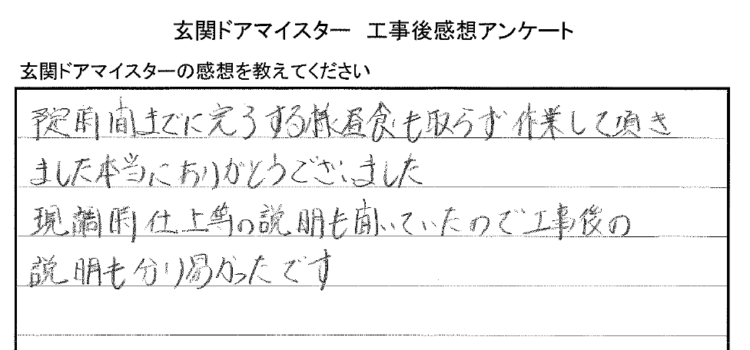 玄関ドアマイスター　工事後感想アンケート
玄関ドアマイスターの感想を教えてください
予定時間までに完了する様昼食も取らず作業して頂き
ました本当にありがとうございました
現調時仕上等の説明も聞いていたので工事後の
説明も分り易かったです